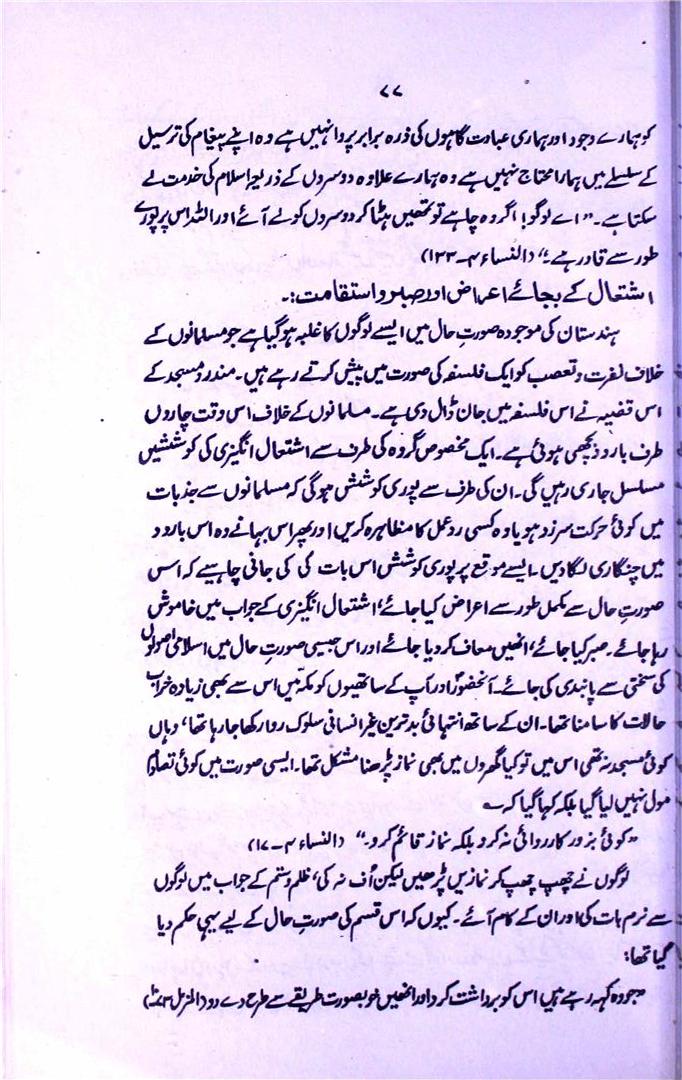 ۷۷
کو ہمارے وجود اور ہماری عبادت گاہوں کی ذرہ برابر پروا نہیں ہے وہ اپنے پیغام کی ترسیل
کے سلسلے میں ہمارا محتاج نہیں ہے وہ ہمارے علاوہ دوسروں کے ذریعہ اسلام کی خدمت لے
سکتا ہے۔ "اے لوگو! اگر وہ چاہے تو تمھیں ہٹا کر دوسروں کو لے آئے اور اللہ اس پر پورے
طور سے قادر ہے۔" (النساء ۴-۱۳۳)
اشتعال کے بجائے اعراض اور صبر و استقامت:۔
ہندستان کی موجودہ صورتِ حال میں ایسے لوگوں کا غلبہ ہو گیا ہے جو مسلمانوں کے
خلاف نفرت و تعصب کو ایک فلسفہ کی صورت میں پیش کرتے رہے ہیں۔ مندر و مسجد کے
اس قضیہ نے اس فلسفہ میں جان ڈال دی ہے۔ مسلمانوں کے خلاف اس وقت چاروں
طرف بارود بچھی ہوئی ہے۔ ایک مخصوص گروہ کی طرف سے اشتعال انگیزی کی کوششیں
مسلسل جاری رہیں گی۔ ان کی طرف سے پوری کوشش ہوگی کہ مسلمانوں سے جذبات
میں کوئی حرکت سرزد ہو یا وہ کسی ردِ عمل کا مظاہرہ کریں اور پھر اس بہانے وہ اس بارود
میں چنگاری لگا دیں۔ ایسے موقع پر پوری کوشش اس بات کی کی جانی چاہیے کہ اس
صورتِ حال سے مکمل طور سے اعراض کیا جائے، اشتعال انگیزی کے جواب میں خاموش
رہا جائے۔ صبر کیا جائے، انھیں معاف کر دیا جائے اور اس جیسی صورتِ حال میں اسلامی اصولوں
کی سختی سے پابندی کی جائے۔ آنحضورؐ اور آپ کے ساتھیوں کو مکہ میں اس سے بھی زیادہ خراب
حالات کا سامنا تھا۔ ان کے ساتھ انتہائی بدترین غیر انسانی سلوک روا رکھا جا رہا تھا، وہاں
کوئی مسجد نہ تھی اس میں تو کیا گھروں میں بھی نماز پڑھنا مشکل تھا۔ ایسی صورت میں کوئی تصادم
مول نہیں لیا گیا بلکہ کہا گیا کہ ؎
"کوئی بزور کارروائی نہ کرو بلکہ نماز قائم کرو۔" (النساء ۴-۱۷)
لوگوں نے چھپ چھپ کر نمازیں پڑھیں لیکن اُف نہ کی، ظلم و ستم کے جواب میں لوگوں
سے نرم بات کی اور ان کے کام آئے۔ کیوں کہ اس قسم کی صورتِ حال کے لیے یہی حکم دیا
گیا تھا:
"جو وہ کہہ رہے ہیں اس کو برداشت کرو اور انھیں خوبصورت طریقے سے طرح دے دو (المزمل